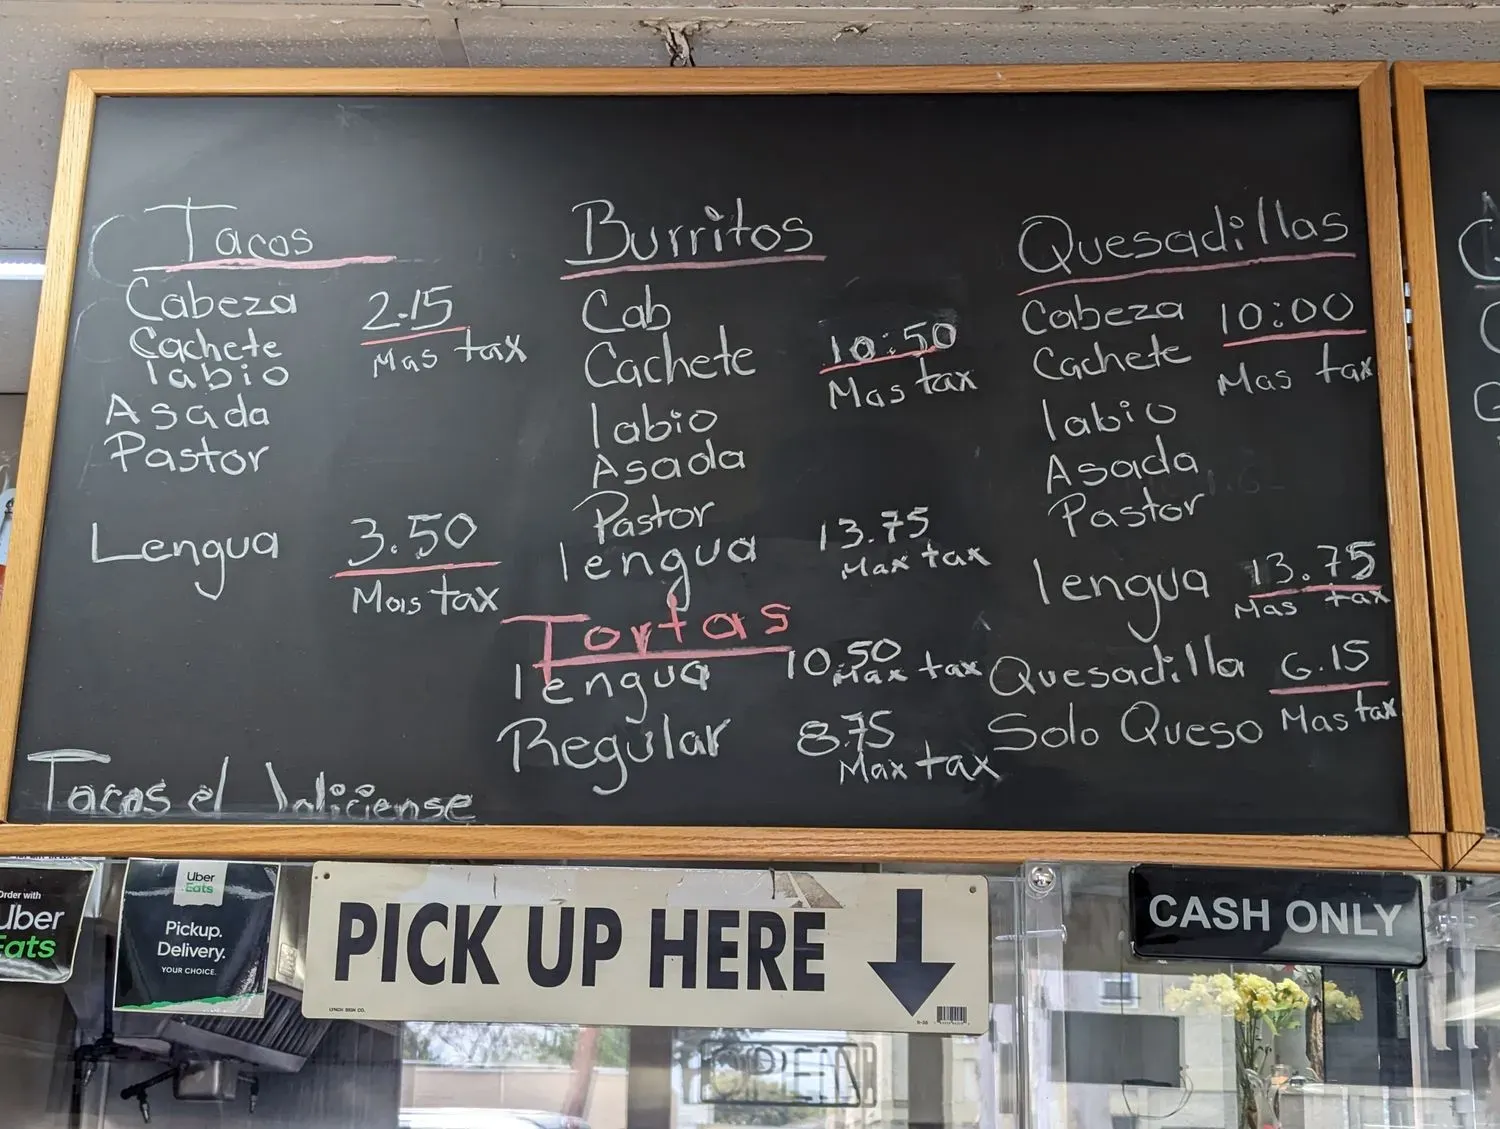 Tacos
Cabeza 2.15
Cachete Mas tax
labio
Asada
Pastor
Lengua 3.50
Mas tax
Tacos el Jaliciense
Burritos
Cab
Cachete 10:50
Mas tax
labio
Asada
Pastor
lengua 13.75
Max tax
Tortas
lengua 10.50
Max tax
Regular 8.75
Max tax
Quesadillas
Cabeza 10:00
Cachete Mas tax
labio
Asada
Pastor
lengua 13.75
Mas tax
Quesadilla 6.15
Solo Queso Mas tax
Order with
Uber
Eats
Uber
Eats
Pickup.
Delivery.
YOUR CHOICE.
PICK UP HERE
LYNCH SIGN CO.
CASH ONLY
OPEN